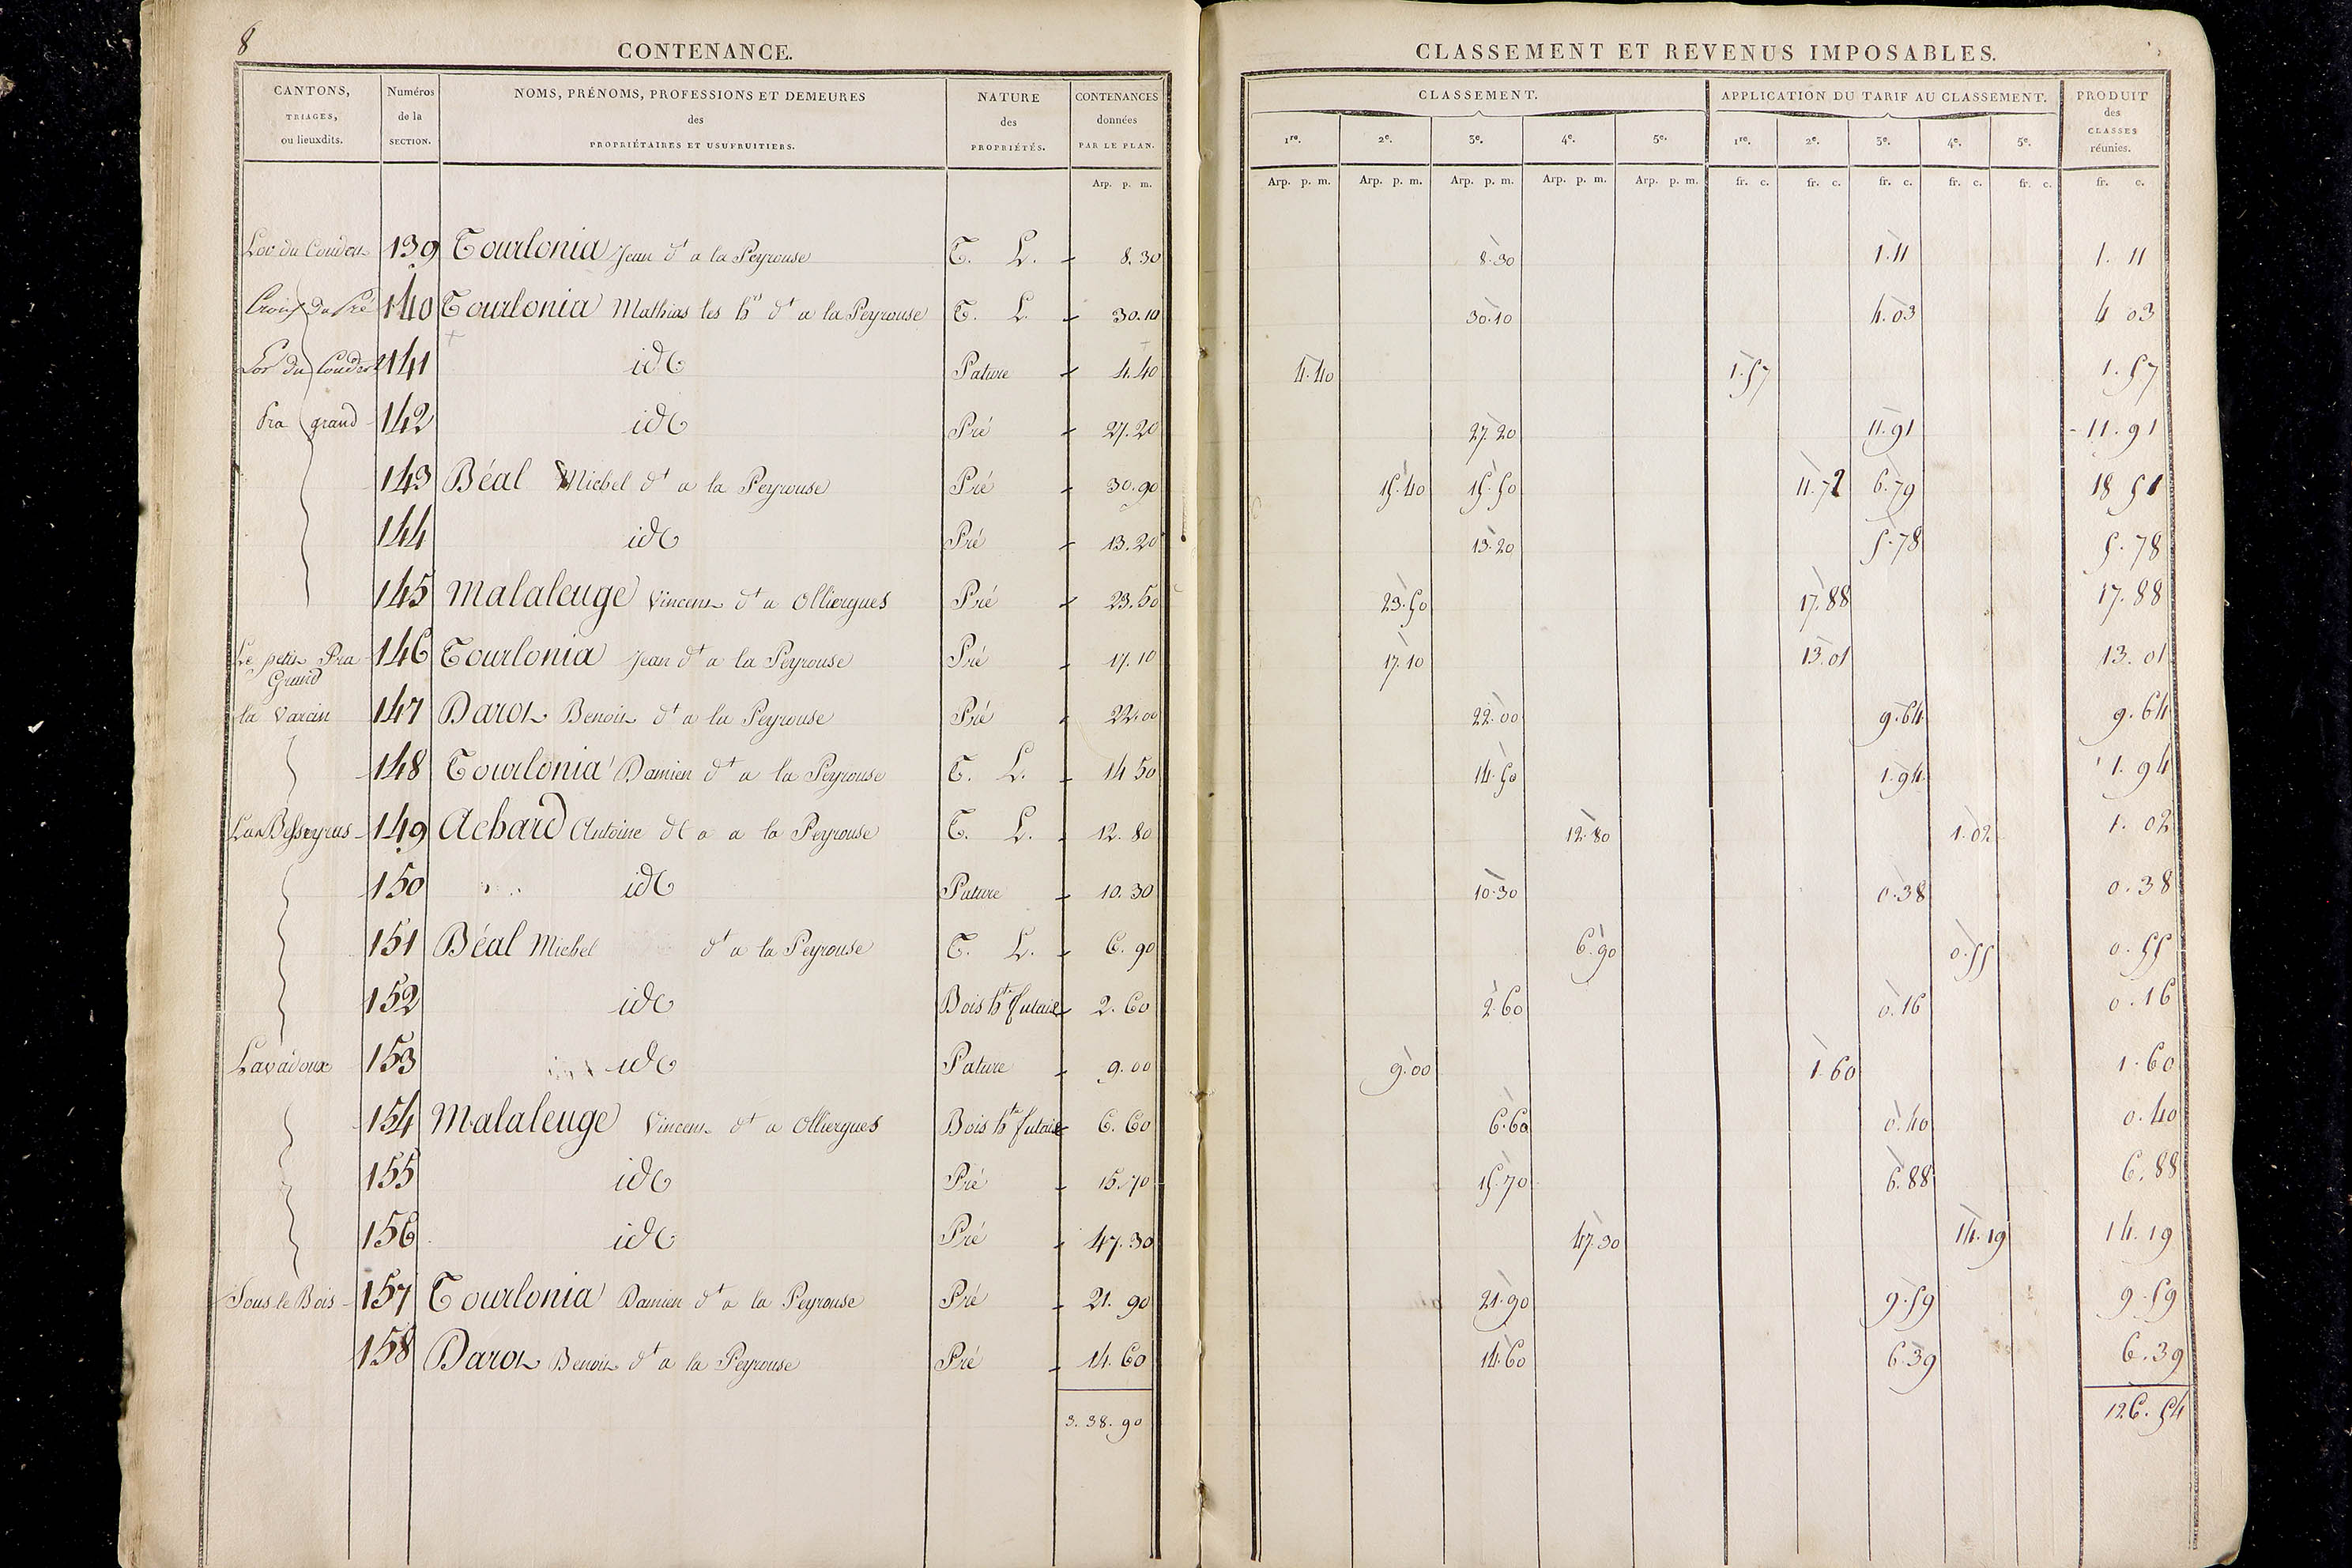 8
CONTENANCE.
CLASSEMENT ET REVENUS IMPOSABLES.
CANTONS, TRIAGES, ou lieuxdits. Numéros de la SECTION. NOMS, PRÉNOMS, PROFESSIONS ET DEMEURES des PROPRIÉTAIRES ET USUFRUITIERS. NATURE des PROPRIÉTÉS. CONTENANCES données PAR LE PLAN.
CLASSEMENT. APPLICATION DU TARIF AU CLASSEMENT. PRODUIT des CLASSES réunies.
1re. 2e. 3e. 4e. 5e. 1re. 2e. 3e. 4e. 5e.
Arp. p. m. Arp. p. m. Arp. p. m. Arp. p. m. Arp. p. m. Arp. p. m. fr. c. fr. c. fr. c. fr. c. fr. c. fr. c.
du 139 Tourlonia Jean dt a la Peyrouse T. L. 8.30 8.30 1.11 1.11
du Pré 140 Tourlonia Mathias les hrs dt a la Peyrouse T. L. 30.10 30.10 4.03 4 03
du Couderc 141 id Pature 4.40 4.40 1.57 1.57
Pra grand 142 id Pré 27.20 27.20 11.91 11.91
143 Béal Michel dt a la Peyrouse Pré 30.90 15.40 15.50 11.72 6.79 18 51
144 id Pré 13.20 13.20 5.78 5.78
145 Malaleuge Vincent dt a Olliergues Pré 23.50 23.50 17.88 17.88
Le petit Pra Grand 146 Tourlonia Jean dt a la Peyrouse Pré 17.10 17.10 13.01 13.01
la Varcin 147 Darot Benoit dt a la Peyrouse Pré 22.00 22.00 9.64 9.64
148 Tourlonia Damien dt a la Peyrouse T. L. 14 50 14.50 1.94 1.94
Las Besseyras 149 Achard Antoine a la Peyrouse T. L. 12.80 12.80 1.02 1.02
150 id Pature 10.30 10.30 0.38 0.38
151 Béal Michel dt a la Peyrouse T. L. 6.90 6.90 0.55 0.55
152 id Bois hte futaie 2.60 2.60 0.16 0.16
Lavadoux 153 id Pature 9.00 9.00 1.60 1.60
154 Malaleuge Vincent dt a Olliergues Bois hte futaie 6.60 6.60 0.40 0.40
155 id Pré 15.70 15.70 6.88 6.88
156 id Pré 47.30 47.30 14.19 14.19
Sous le Bois 157 Tourlonia Damien dt a la Peyrouse Pré 21.90 21.90 9.59 9.59
158 Darot Benoit dt a la Peyrouse Pré 14.60 14.60 6.39 6.39
3.38.90 126.54